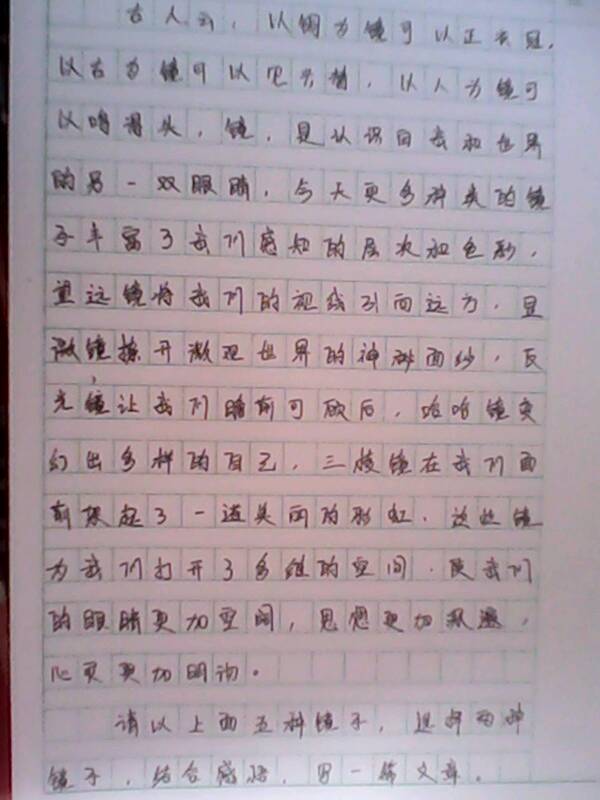 古人云，以铜为镜可以正衣冠，
以古为镜可以见兴替，以人为镜可
以明得失，镜，是认识自我和世界
的另一双眼睛，今天更多种类的镜
子丰富了我们感知的层次和色彩，
望远镜将我们的视线引向远方，显
微镜撩开微观世界的神秘面纱，反
光镜让我们瞻前可顾后，哈哈镜变
幻出多样的自己，三棱镜在我们面
前架起了一道美丽的彩虹，这些镜
为我们打开了多维的空间，使我们
的眼睛更加空间，思想更加
心灵更加明
请以上面五种镜子，选择两种
镜子，结合感悟，写一篇文章。